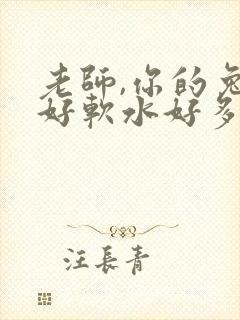 老師,你的兔
好軟水好多
汪長青